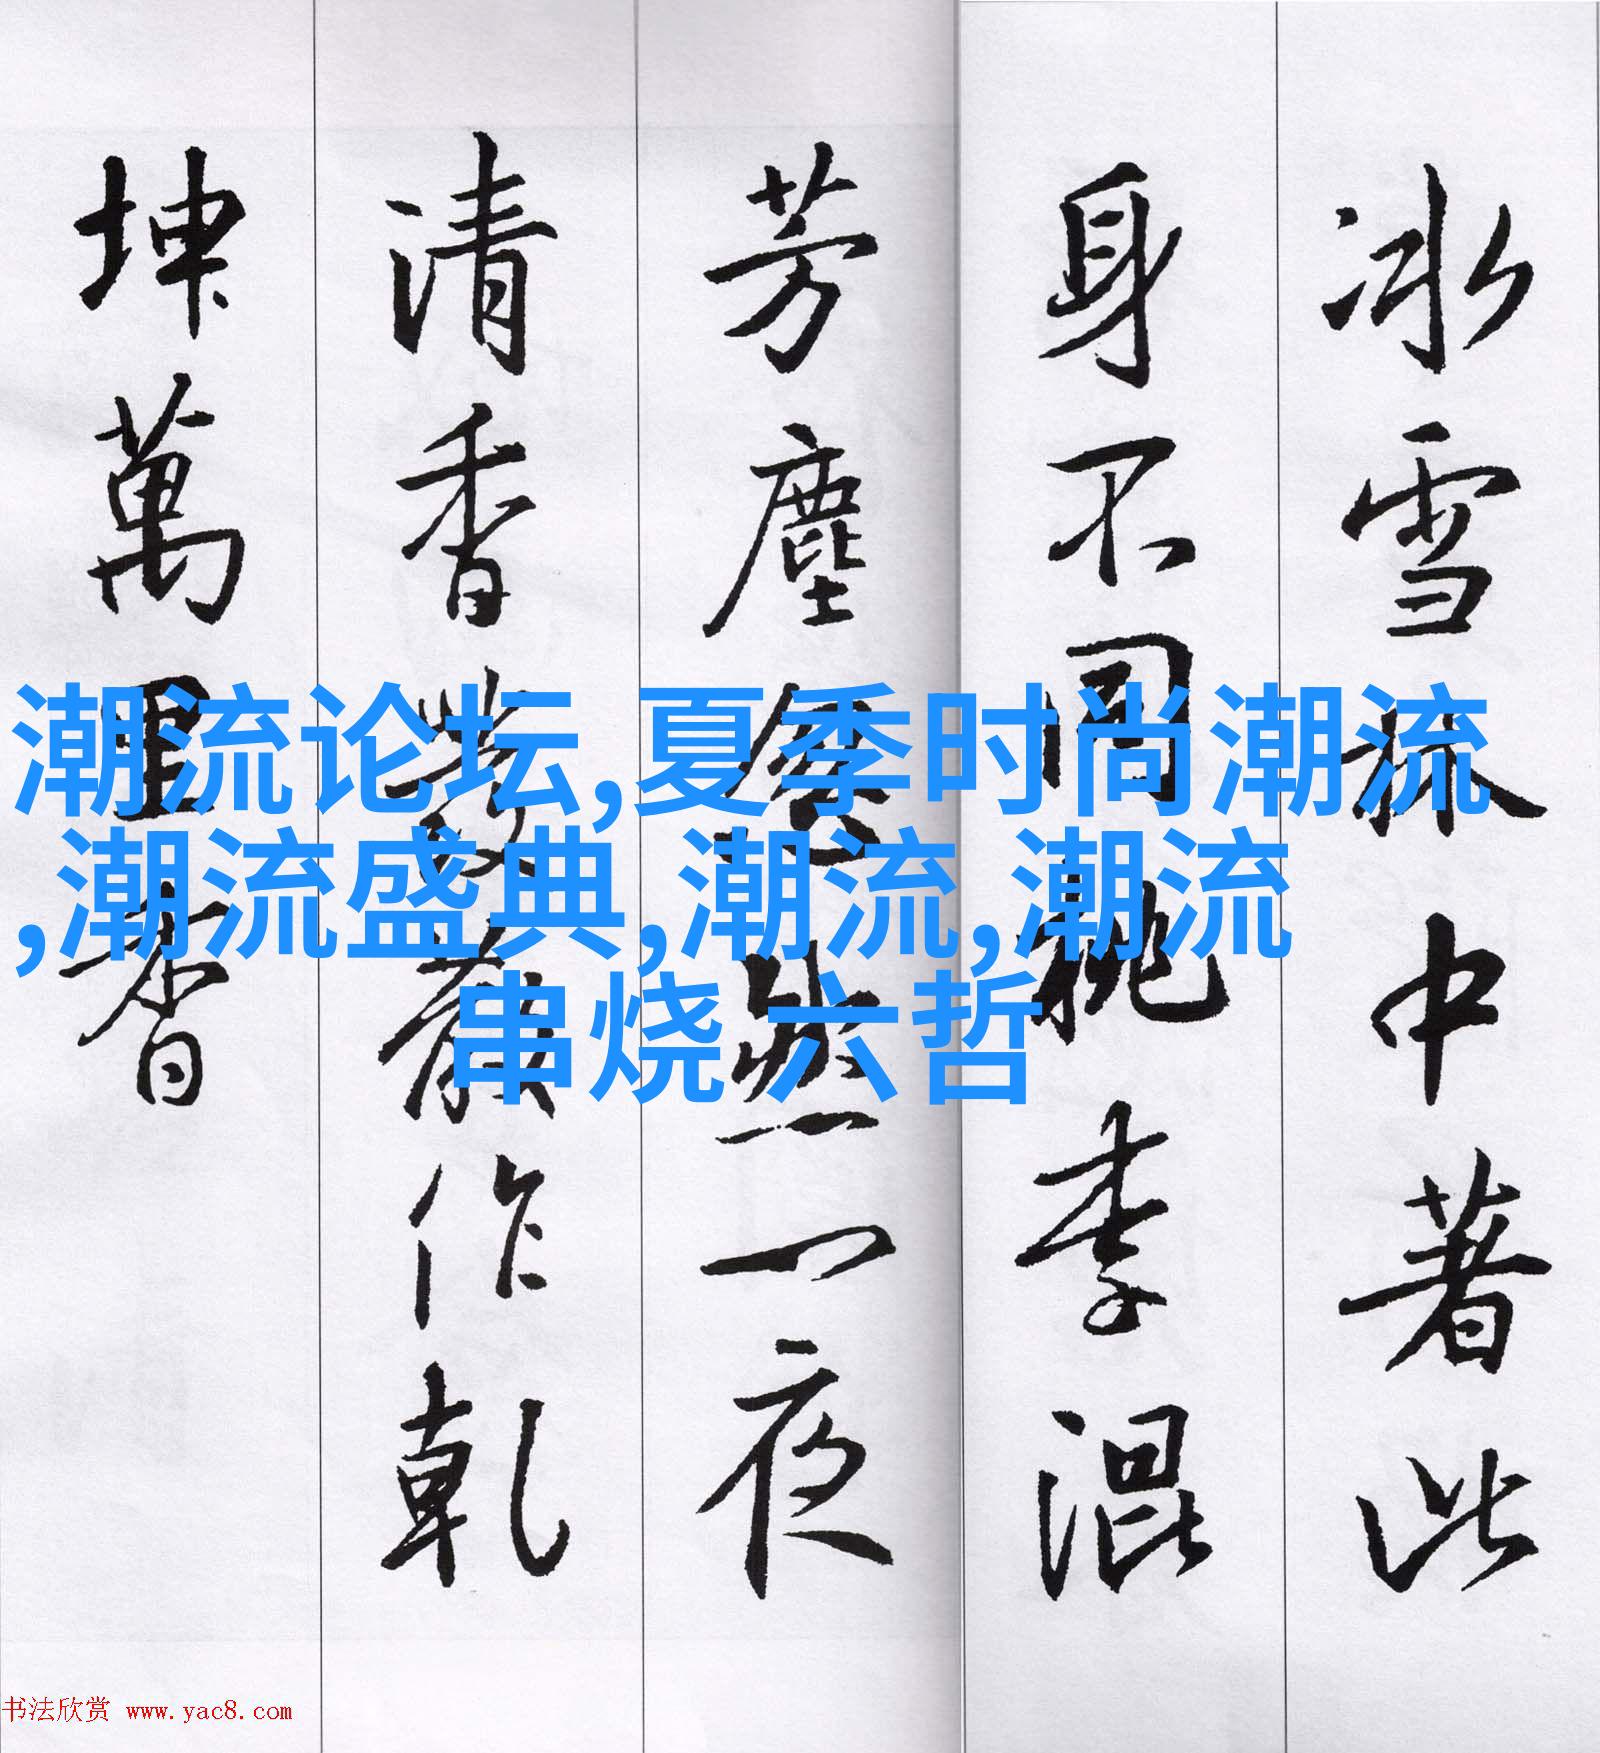 冰雪林中著此
身不同桃李混
芳塵忽然一夜
清香發散作乾
坤萬里春
潮流论坛,夏季时尚潮流
,潮流盛典,潮流,潮流
串烧 六哲
书法欣赏 www.yac8.com